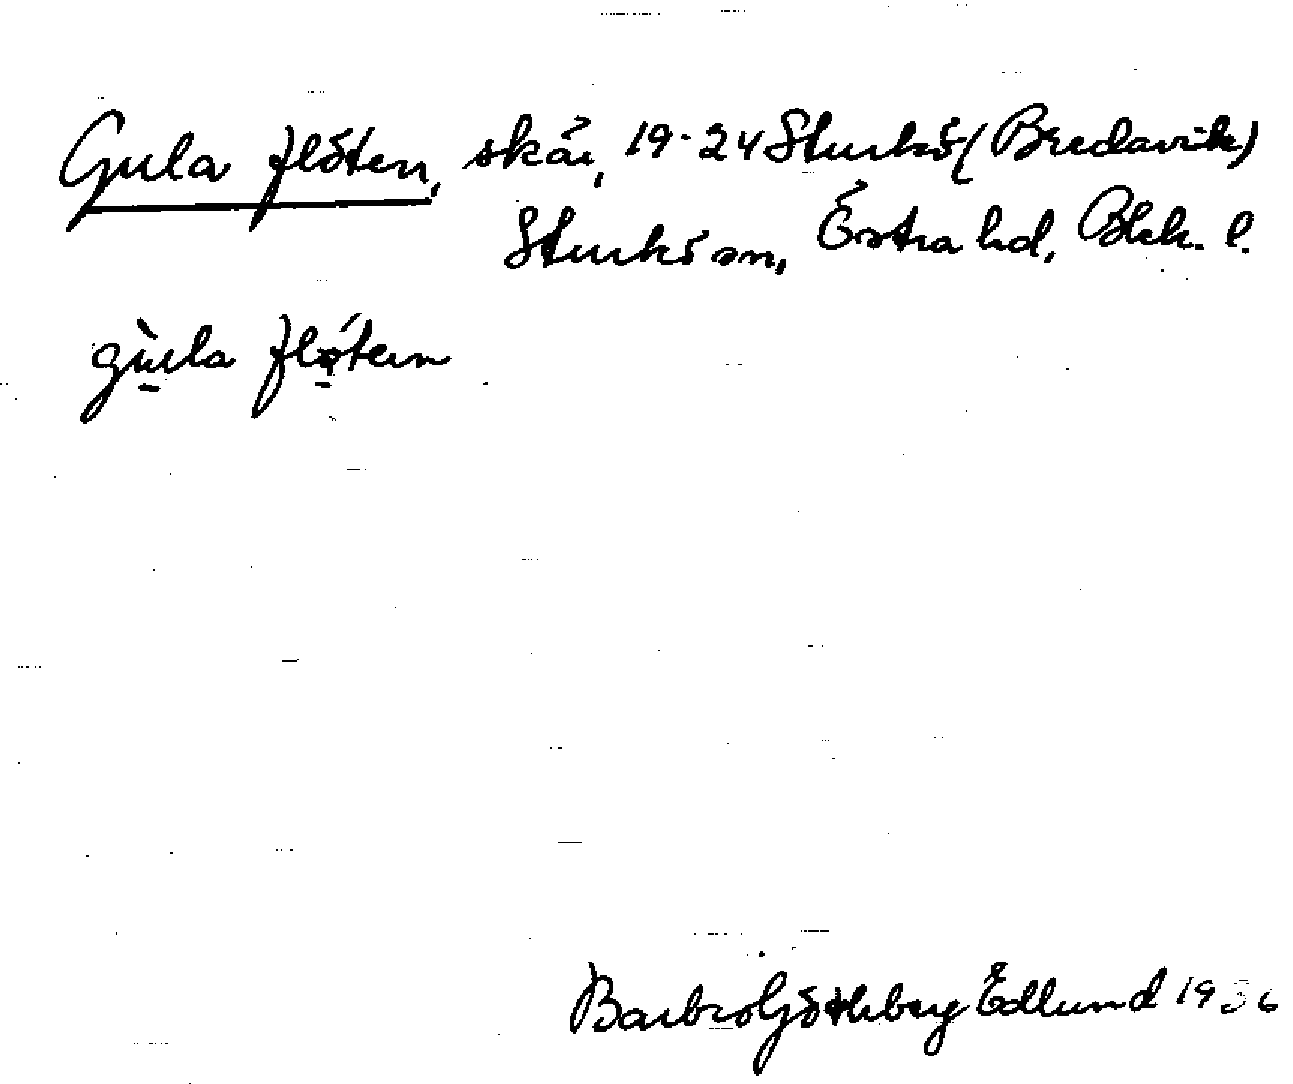 Gula flöten, skär, 19-24 Sturkö (Bredavik)
Sturkö sn, Östra hd, Blek. l.
gùla flö́ten
Barbro Götheberg Edlund 1936